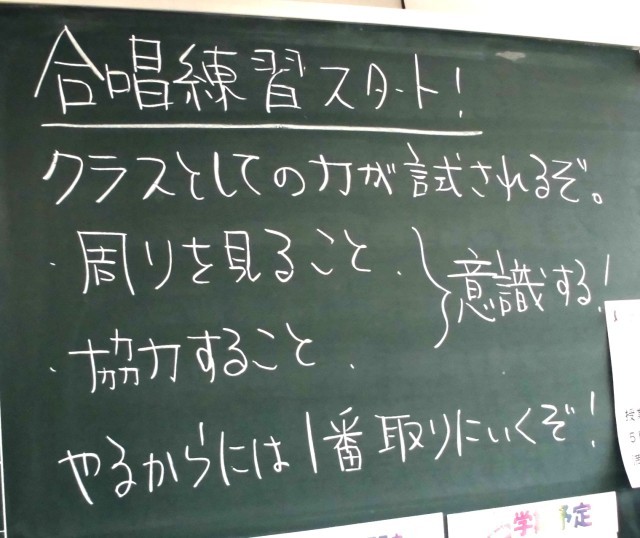 合唱練習スタート!
クラスとしての力が試されるぞ。
・周りを見ること、
・協力すること、
意識する!
やるからには1番取りにいくぞ!
予定